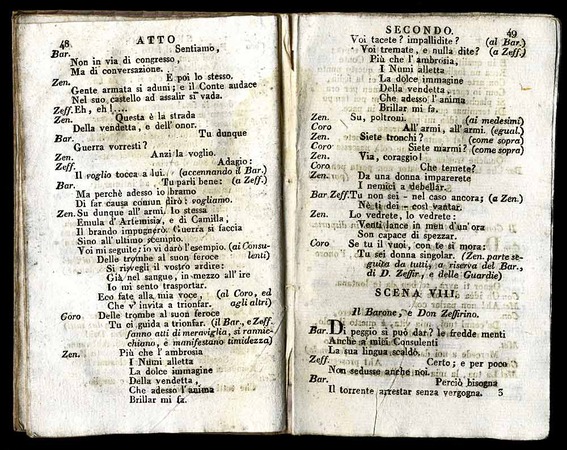 48 ATTO
Bar. Sentiamo,
Non in via di congresso,
Ma di conversazione.
Zen. E poi lo stesso.
Gente armata si aduni; e il Conte audace
Nel suo castello ad assalir si vada.
Zeff. Eh, eh!....
Zen. Questa è la strada
Della vendetta, e dell' onor.
Bar. Tu dunque
Guerra vorresti?
Zen. Anzi la voglio.
Zeff. Adagio:
Il voglio tocca a lui. (accennando il Bar.)
Bar. Tu parli bene: (a Zeff.)
Ma perchè adesso io bramo
Di far causa comun dirò: vogliamo.
Zen. Su dunque all' armi. Io stessa
Emula d'Artemisia, e di Camilla,
Il brando impugnerò. Guerra si faccia
Sino all'ultimo scempio.
Voi mi seguite; io vi darò l'esempio. (ai Consulenti)
Delle trombe al suon feroce
Si risvegli il vostro ardire:
Già nel sangue, in mezzo all' ire
Io mi sento trasportar.
Eco fate alla mia voce, (al Coro, ed
Che v' invita a trionfar. agli altri)
Coro Delle trombe al suon feroce
Tu ci guida a trionfar. (il Bar., e Zeff.
fanno atti di meraviglia, si rannicchiano,
e manifestano timidezza)
Zen. Più che l' ambrosia
I Numi alletta
La dolce immagine
Della vendetta,
Che adesso l'anima
Brillar mi fa.
SECONDO. 49
Voi tacete? impallidite? (al Bar.)
Voi tremate, e nulla dite? (a Zeff.)
Più che l' ambrosia,
I Numi alletta
La dolce immagine
Della vendetta,
Che adesso l' anima
Brillar mi fa.
Zen. Su, poltroni. (ai medesimi)
Coro All' armi, all' armi. (egual.)
Zen. Siete tronchi? (come sopra)
Coro Siete marmi? (come sopra)
Zen. Via, coraggio!
Coro Che temete?
Zen. Da una donna imparerete
I nemici a debellar.
Bar. Zeff. Tu non sei - nel caso ancora; (a Zen.)
Nè ti dei - così vantar.
Zen. Lo vedrete, lo vedrete:
Venti lance in men d'un' ora
Son capace di spezzar.
Coro Se tu il vuoi, con te si mora:
Tu sei donna singolar. (Zen. parte seguita
da tutti, a riserva del Bar.,
di D. Zeffir., e delle Guardie)
SCENA VIII.
Il Barone, e Don Zeffirino.
Bar. Di peggio si può dar? le fredde menti
Anche a miei Consulenti
La sua lingua scaldò.
Zeff. Certo; e per poco
Non sedusse anche noi.
Bar. Perciò bisogna
Il torrente arrestar senza vergogna. 5